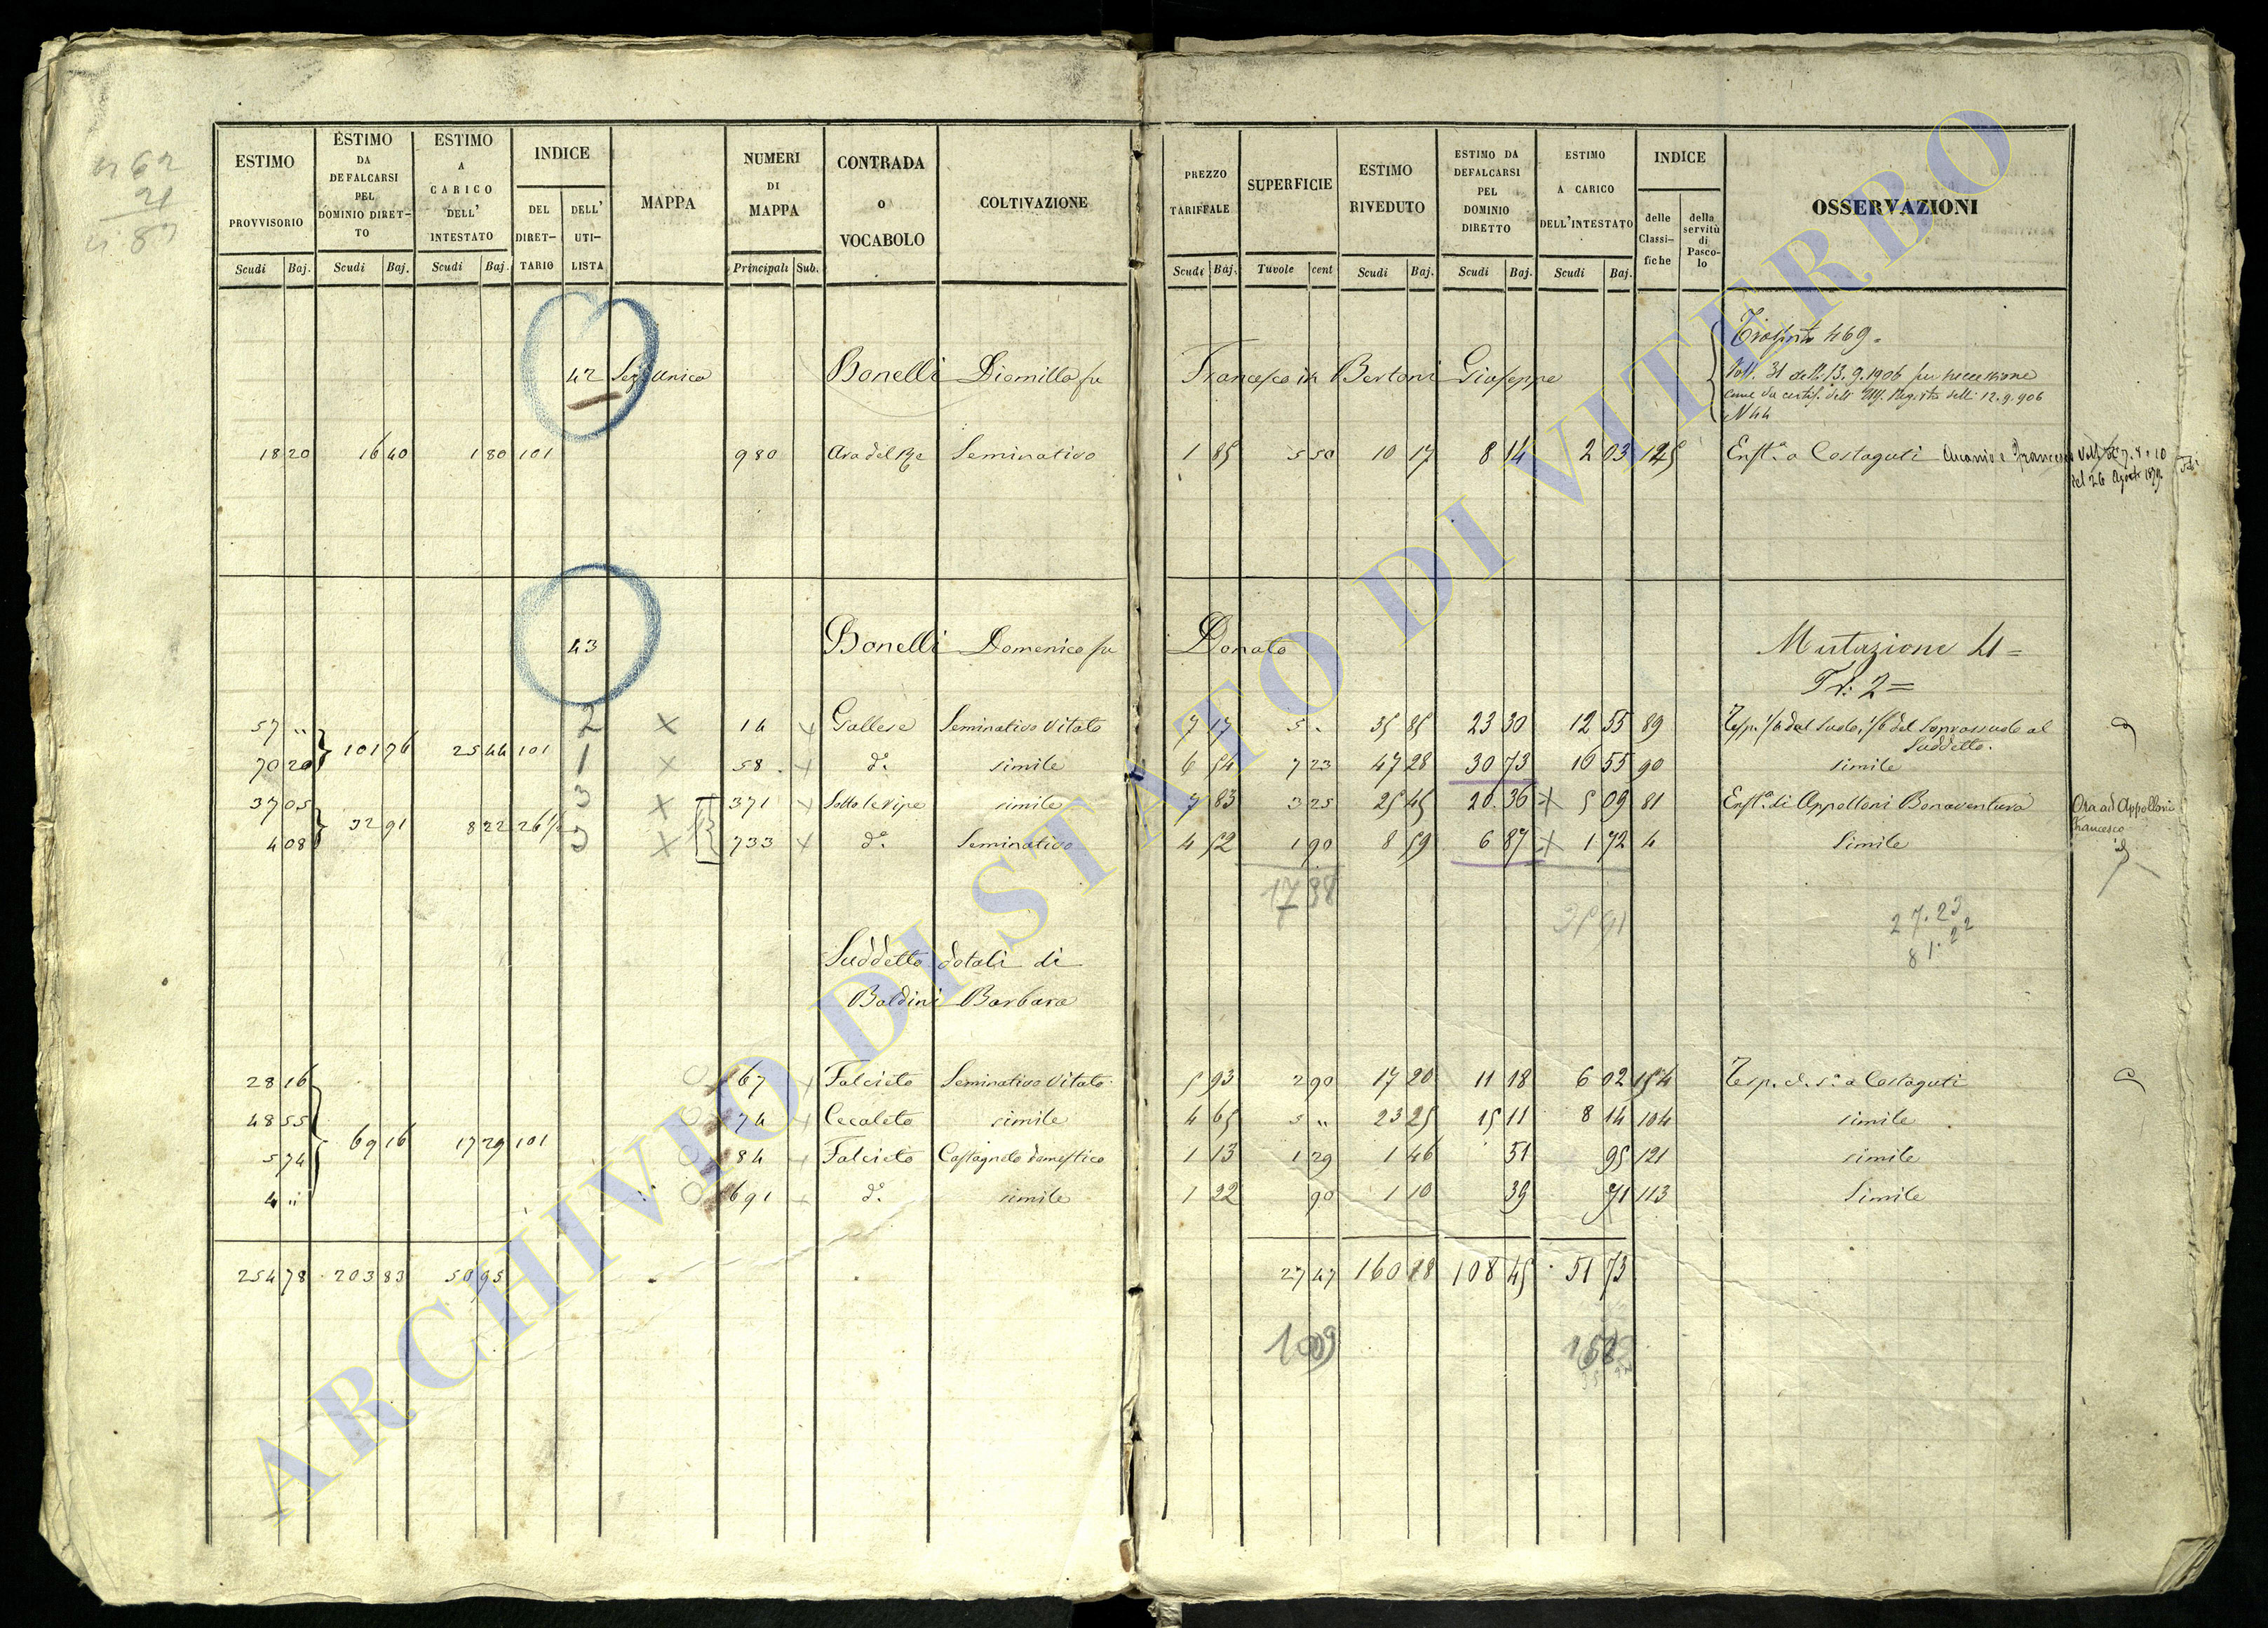 ESTIMO PROVVISORIO Scudi Baj.
ESTIMO DA DEFALCARSI PEL DOMINIO DIRETTO Scudi Baj.
ESTIMO A CARICO DELL' INTESTATO Scudi Baj.
INDICE DEL DIRETTARIO DELL' UTILISTA
MAPPA
NUMERI DI MAPPA Principali Sub.
CONTRADA o VOCABOLO
COLTIVAZIONE
PREZZO TARIFFALE Scudi Baj.
SUPERFICIE Tavole cent
ESTIMO RIVEDUTO Scudi Baj.
ESTIMO DA DEFALCARSI PEL DOMINIO DIRETTO Scudi Baj.
ESTIMO A CARICO DELL'INTESTATO Scudi Baj.
INDICE delle Classifiche della servitù di Pascolo
OSSERVAZIONI
Trasporto 469
42 Sez. Unica Bonelli Diomilla fu Francesco in Bertoni Giuseppe
Vol. 31 della 13.9.1906 per successione
come da certif. dell' Uff. Registro delli 12.9.906
N 44
18 20 16 40 1 80 101 980 Ara del Re Seminativo 1 85 5 50 10 17 8 14 2 03 125 Enft.a a Costaguti Ascanio e Francesco
del 26 Agosto 1879
43 Bonelli Domenico fu Donato Mutazione 41 =
Tr: 2 =
57 " 2 14 Gallese Seminativo Vitato 7 17 5 . 35 85 23 30 12 55 89 Resp. 1/4 del suolo, 1/6 del soprassuolo al
Suddetto.
101 76 25 44 101
70 20 1 58 d.o simile 6 54 7 23 47 28 30 73 16 55 90 simile
37 05 3 371 Sotto le ripe simile 7 83 3 25 25 45 20 36 5 09 81 Enft.a di Appolloni Bonaventura Ora ad Appolloni
Francesco
32 91 8 22 26 1/2
4 08 3 733 d.o Seminativo 4 52 1 90 8 59 6 87 1 72 4 Simile
17 38
35 91
27.23
81.22
Suddetto dotali di
Baldini Barbara
28 16 67 Falcieto Seminativo Vitato 5 93 2 90 17 20 11 18 6 02 154 Resp. c. s.a a Costaguti
48 55 74 Cecaleto simile 4 65 5 " 23 25 15 11 8 14 104 simile
69 16 17 29 101
5 74 84 Falcieto Castagneto domestico 1 13 1 29 1 46 51 95 121 simile
4 " 691 d.o simile 1 22 90 1 10 39 71 113 Simile
254 78 203 83 50 95 27 47 160 18 108 45 51 73
10 09
ARCHIVIO DI STATO DI VITERBO